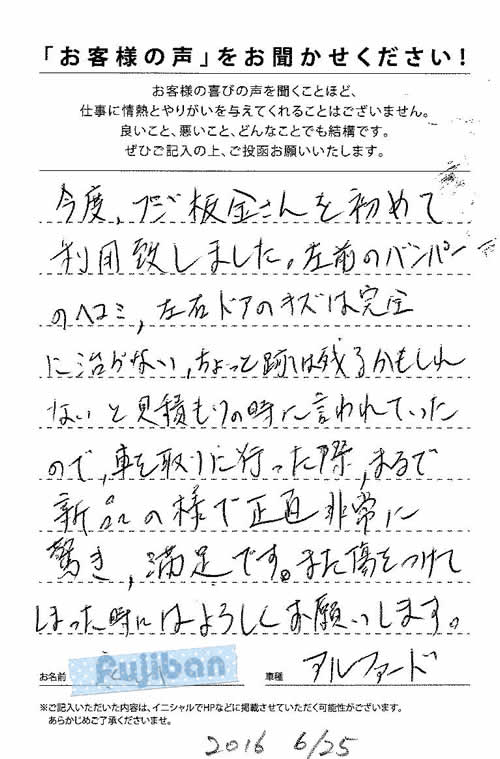 「お客様の声」をお聞かせください!
お客様の喜びの声を聞くことほど、
仕事に情熱とやりがいを与えてくれることはございません。
良いこと、悪いこと、どんなことでも結構です。
ぜひご記入の上、ご投函お願いいたします。
今度、フジ板金さんを初めて
利用致しました。左前のバンパー
のヘコミ,左右ドアのキズは完全
に治らない,ちょっと跡は残るかもしれ
ないと見積もりの時に言われていた
ので,車を取りに行った際,まるで
新品の様で正直非常に
驚き,満足です。また傷をつけて
しまった時にはよろしくお願いします。
お名前 fujiban 車種 アルファード
※ご記入いただいた内容は、イニシャルでHPなどに掲載させていただく可能性がございます。
あらかじめご了承くださいませ。
2016 6/25